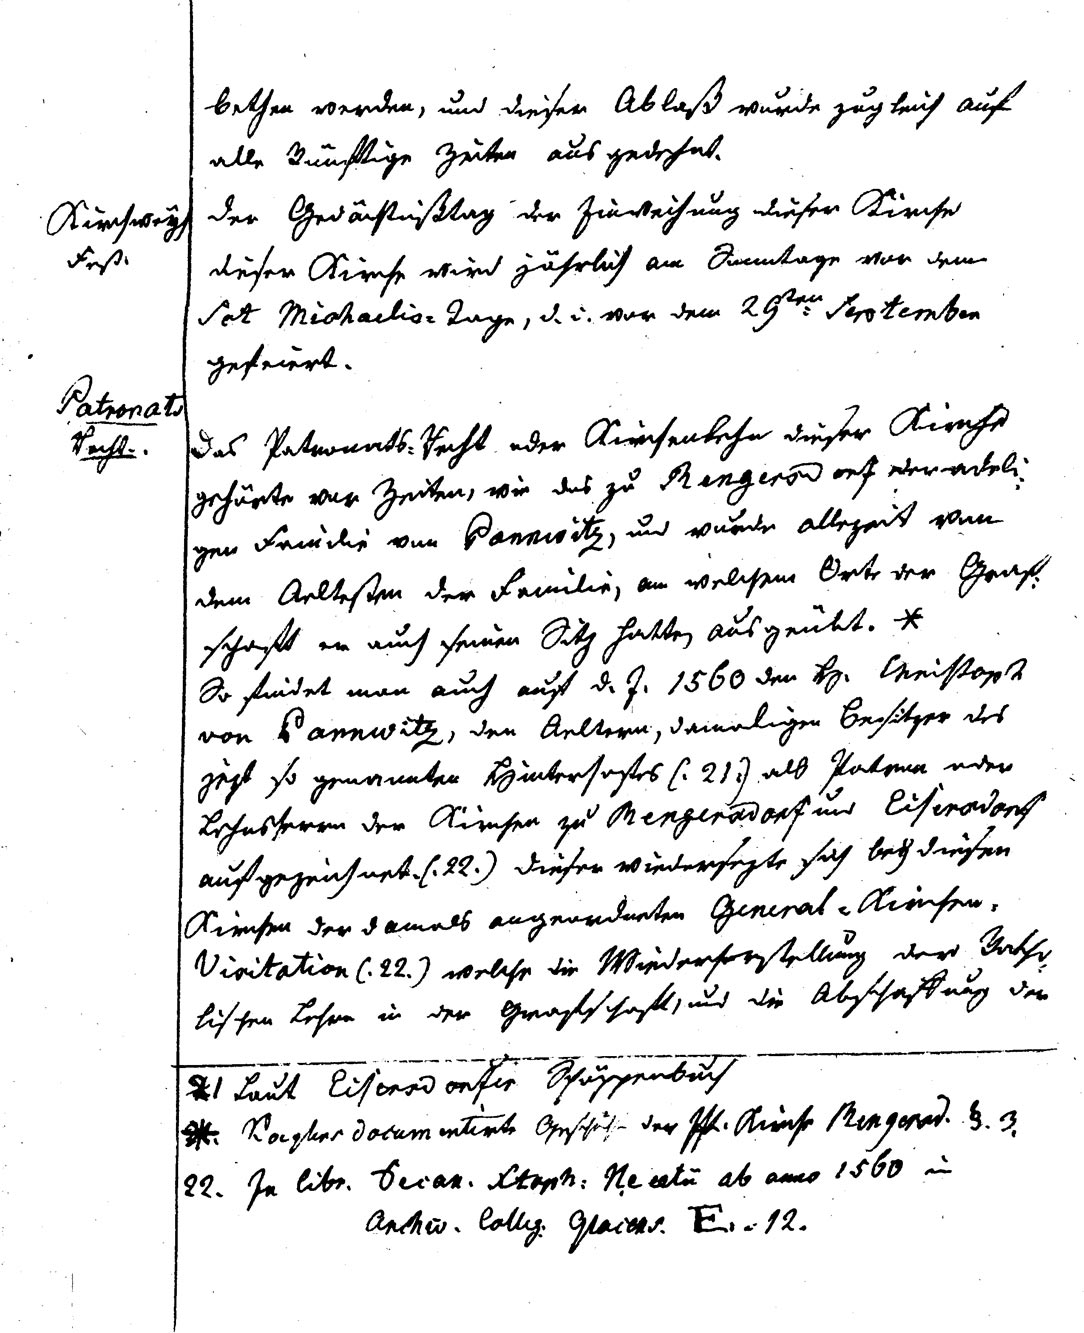 bethen werden, und dieser Ablaß wurde zugleich auf
alle künftige Zeiten ausgedehnt.
Kirchweyh
Fest.
Der Gedächtnißtag der Einweihung dieser Kirche
dieser Kirche wird jährlich am Sonntage vor dem
Sct Michaelis= Tage, d. i. vor dem 29ten September
gefeiert.
Patronats
Recht.
Das Patronats=Recht oder Kirchenlehn dieser Kirche
gehörte vor Zeiten, wie das zu Rengersdorf der adeli=
gen Familie von Pannwitz, und wurde allezeit von
dem Aeltesten der Familie, an welchem Orte der Graf=
schaft er auch seinen Sitz hatte, ausgeübt. *
So findet man auch auf d. J. 1560 den H. Christoph
von Pannwitz, den Aeltern, damaligen Besitzer des
jezt so genannten Hinterhofes (: 21:) als Patron oder
Lehnsherrn der Kirchen zu Rengersdorf und Eisersdorf
aufgezeichnet. (: 22.) Dieser wiedersezte sich bey diesen
Kirchen der damals angeordneten General = Kirchen=
Visitation (: 22.) welche die Wiederherstellung der Katho=
lischen Lehre in der Grafschaft, und die Abschaffung der
21 Laut Eisersdorfer Schöppenbuch
*. Koegler documentirte Geschich der Pf. Kirche Rengersd. §. 3.
22. In libr. Decan. Xtoph: Neaetii ab anno 1560 in
Archiv. Colleg. Glacens. E. . 12.